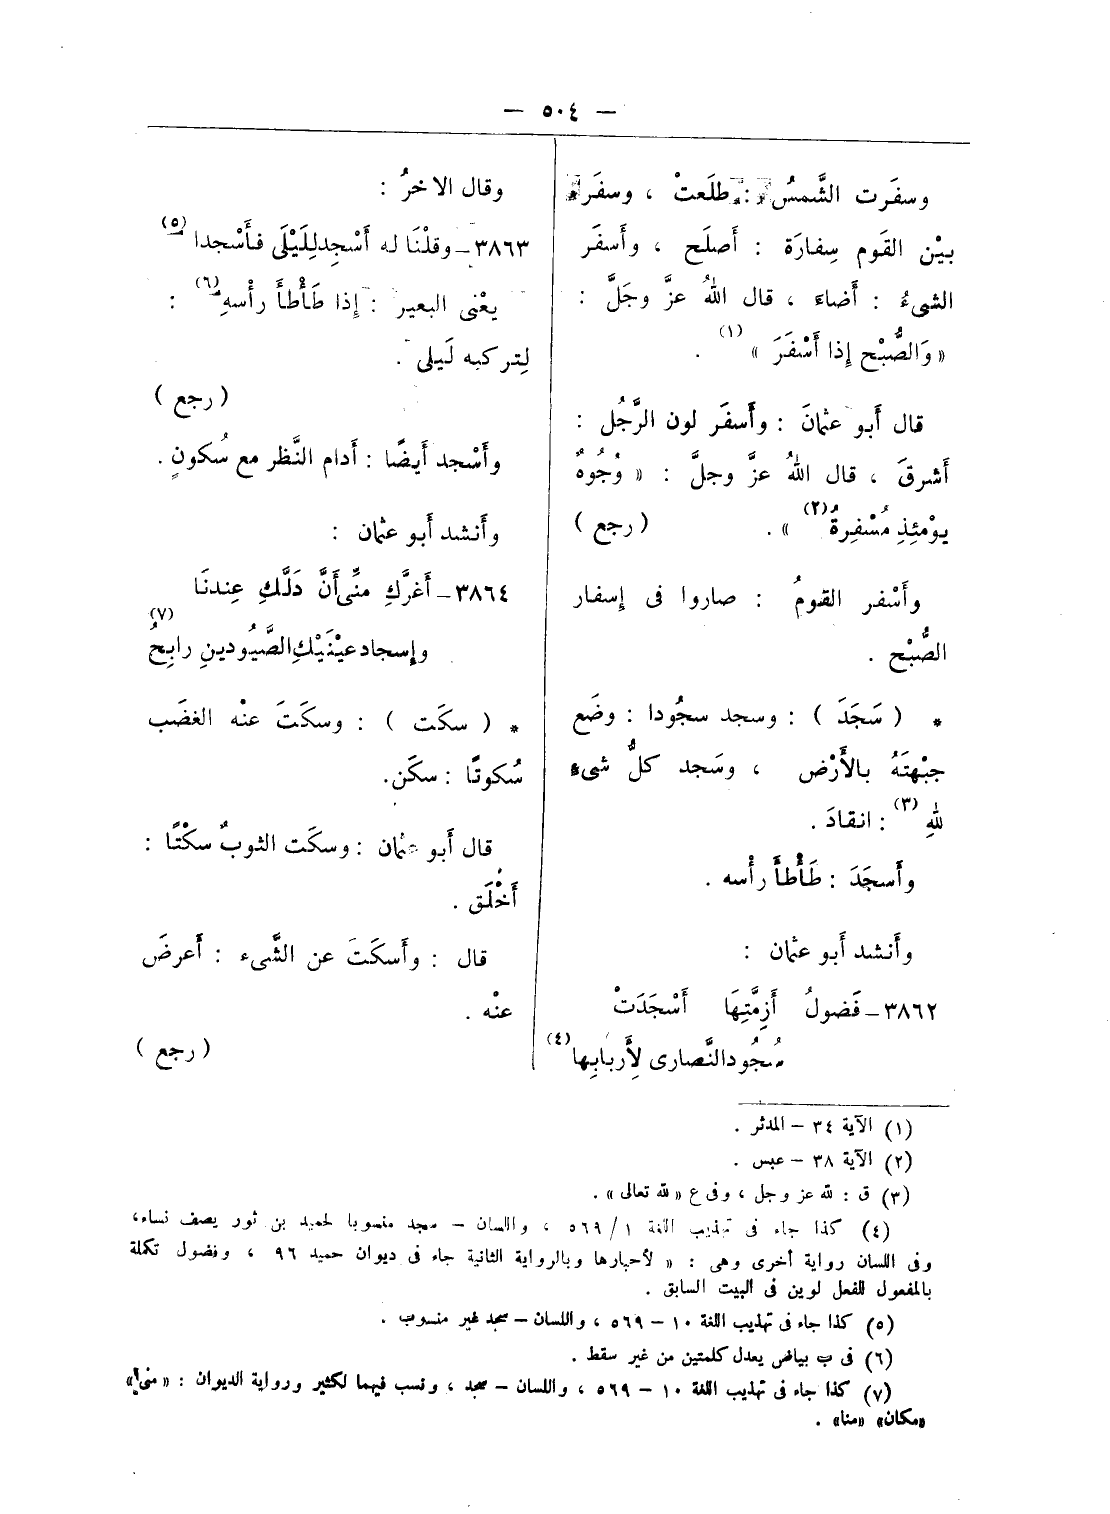 — ٥٠٤ —
وسفَرت الشَّمسُ : طلَعتْ ، وسفَر
بيْن القَوم سِفارَة : أصلَح ، وأسفَر
الشىءُ : أَضاءَ ، قال اللهُ عزَّ وجَلَّ :
« وَالصُّبْح إذا أَسْفَرَ » (١) .
قال أَبو عثمانَ : وأَسفَر لون الرَّجُل :
أَشرقَ ، قال اللهُ عزَّ وجلَّ : « وُجُوهٌ
يوْمئِذٍ مُسْفِرةٌ (٢) » . ( رجع )
وأَسْفر القومُ : صاروا فى إسفار
الصُّبْح .
* ( سَجَدَ ) : وسجد سجُودا : وضَع
جبْهتَهُ بالأَرْض ، وسَجد كلُّ شىء
للهِ (٣) : انقادَ .
وأَسجَدَ : طَأْطأَ رأْسه .
وأَنشد أَبو عثمان :
٣٨٦٢ – فَضولُ أَزِمَّتِهَا أَسْجَدَتْ
سُجُودالنَّصارى لِأَربابِها (٤)
وقال الاخرُ :
٣٨٦٣ – وقلْنَا له أَسْجِدلِلَيْلَى فأَسْجدا (٥)
يعْنى البعير : إذا طَأْطأَ رأْسه (٦) :
لِتركبه لَيلى .
( رجع )
وأَسْجد أَيضًا : أَدام النَّظر مع سُكونٍ .
وأَنشد أَبو عثمان :
٣٨٦٤ – أَغرَّكِ منِّى أَنَّ دَلَّكِ عِندنَا
وإسجادعيْنَيْكِ الصَّيُودينِ رابِحُ (٧)
* ( سكَت ) : وسكَتَ عنْه الغضَب
سُكوتًا : سكَن.
قال أَبو عثمان : وسكَت الثوبُ سكْتًا :
أَخْلَق .
قال : وأَسكَتَ عن الشَّىء : أَعرضَ
عنْه .
( رجع )
(١) الآية ٣٤ – المدثر .
(٢) الآية ٣٨ – عبس .
(٣) ق : لله عز وجل ، وفى ع « لله تعالى » .
(٤) كذا جاء فى تهذيب اللغة ١ / ٥٦٩ ، واللسان – سجد منسوبا لحميد بن ثور يصف نساء،
وفى اللسان رواية أخرى وهى : « لأحبارها وبالرواية الثانية جاء فى ديوان حميد ٩٦ ، وفضول تكملة
بالمفعول للفعل لوين فى البيت السابق .
(٥) كذا جاء فى تهذيب اللغة ١٠ – ٥٦٩ ، واللسان – سجد غير منسوب .
(٦) فى ب بياض يعدل كلمتين من غير سقط .
(٧) كذا جاء فى تهذيب اللغة ١٠ – ٥٦٩ ، واللسان – سجد ، ونسب فيهما لكثير ورواية الديوان : « منى»
«مكان» «منا» .